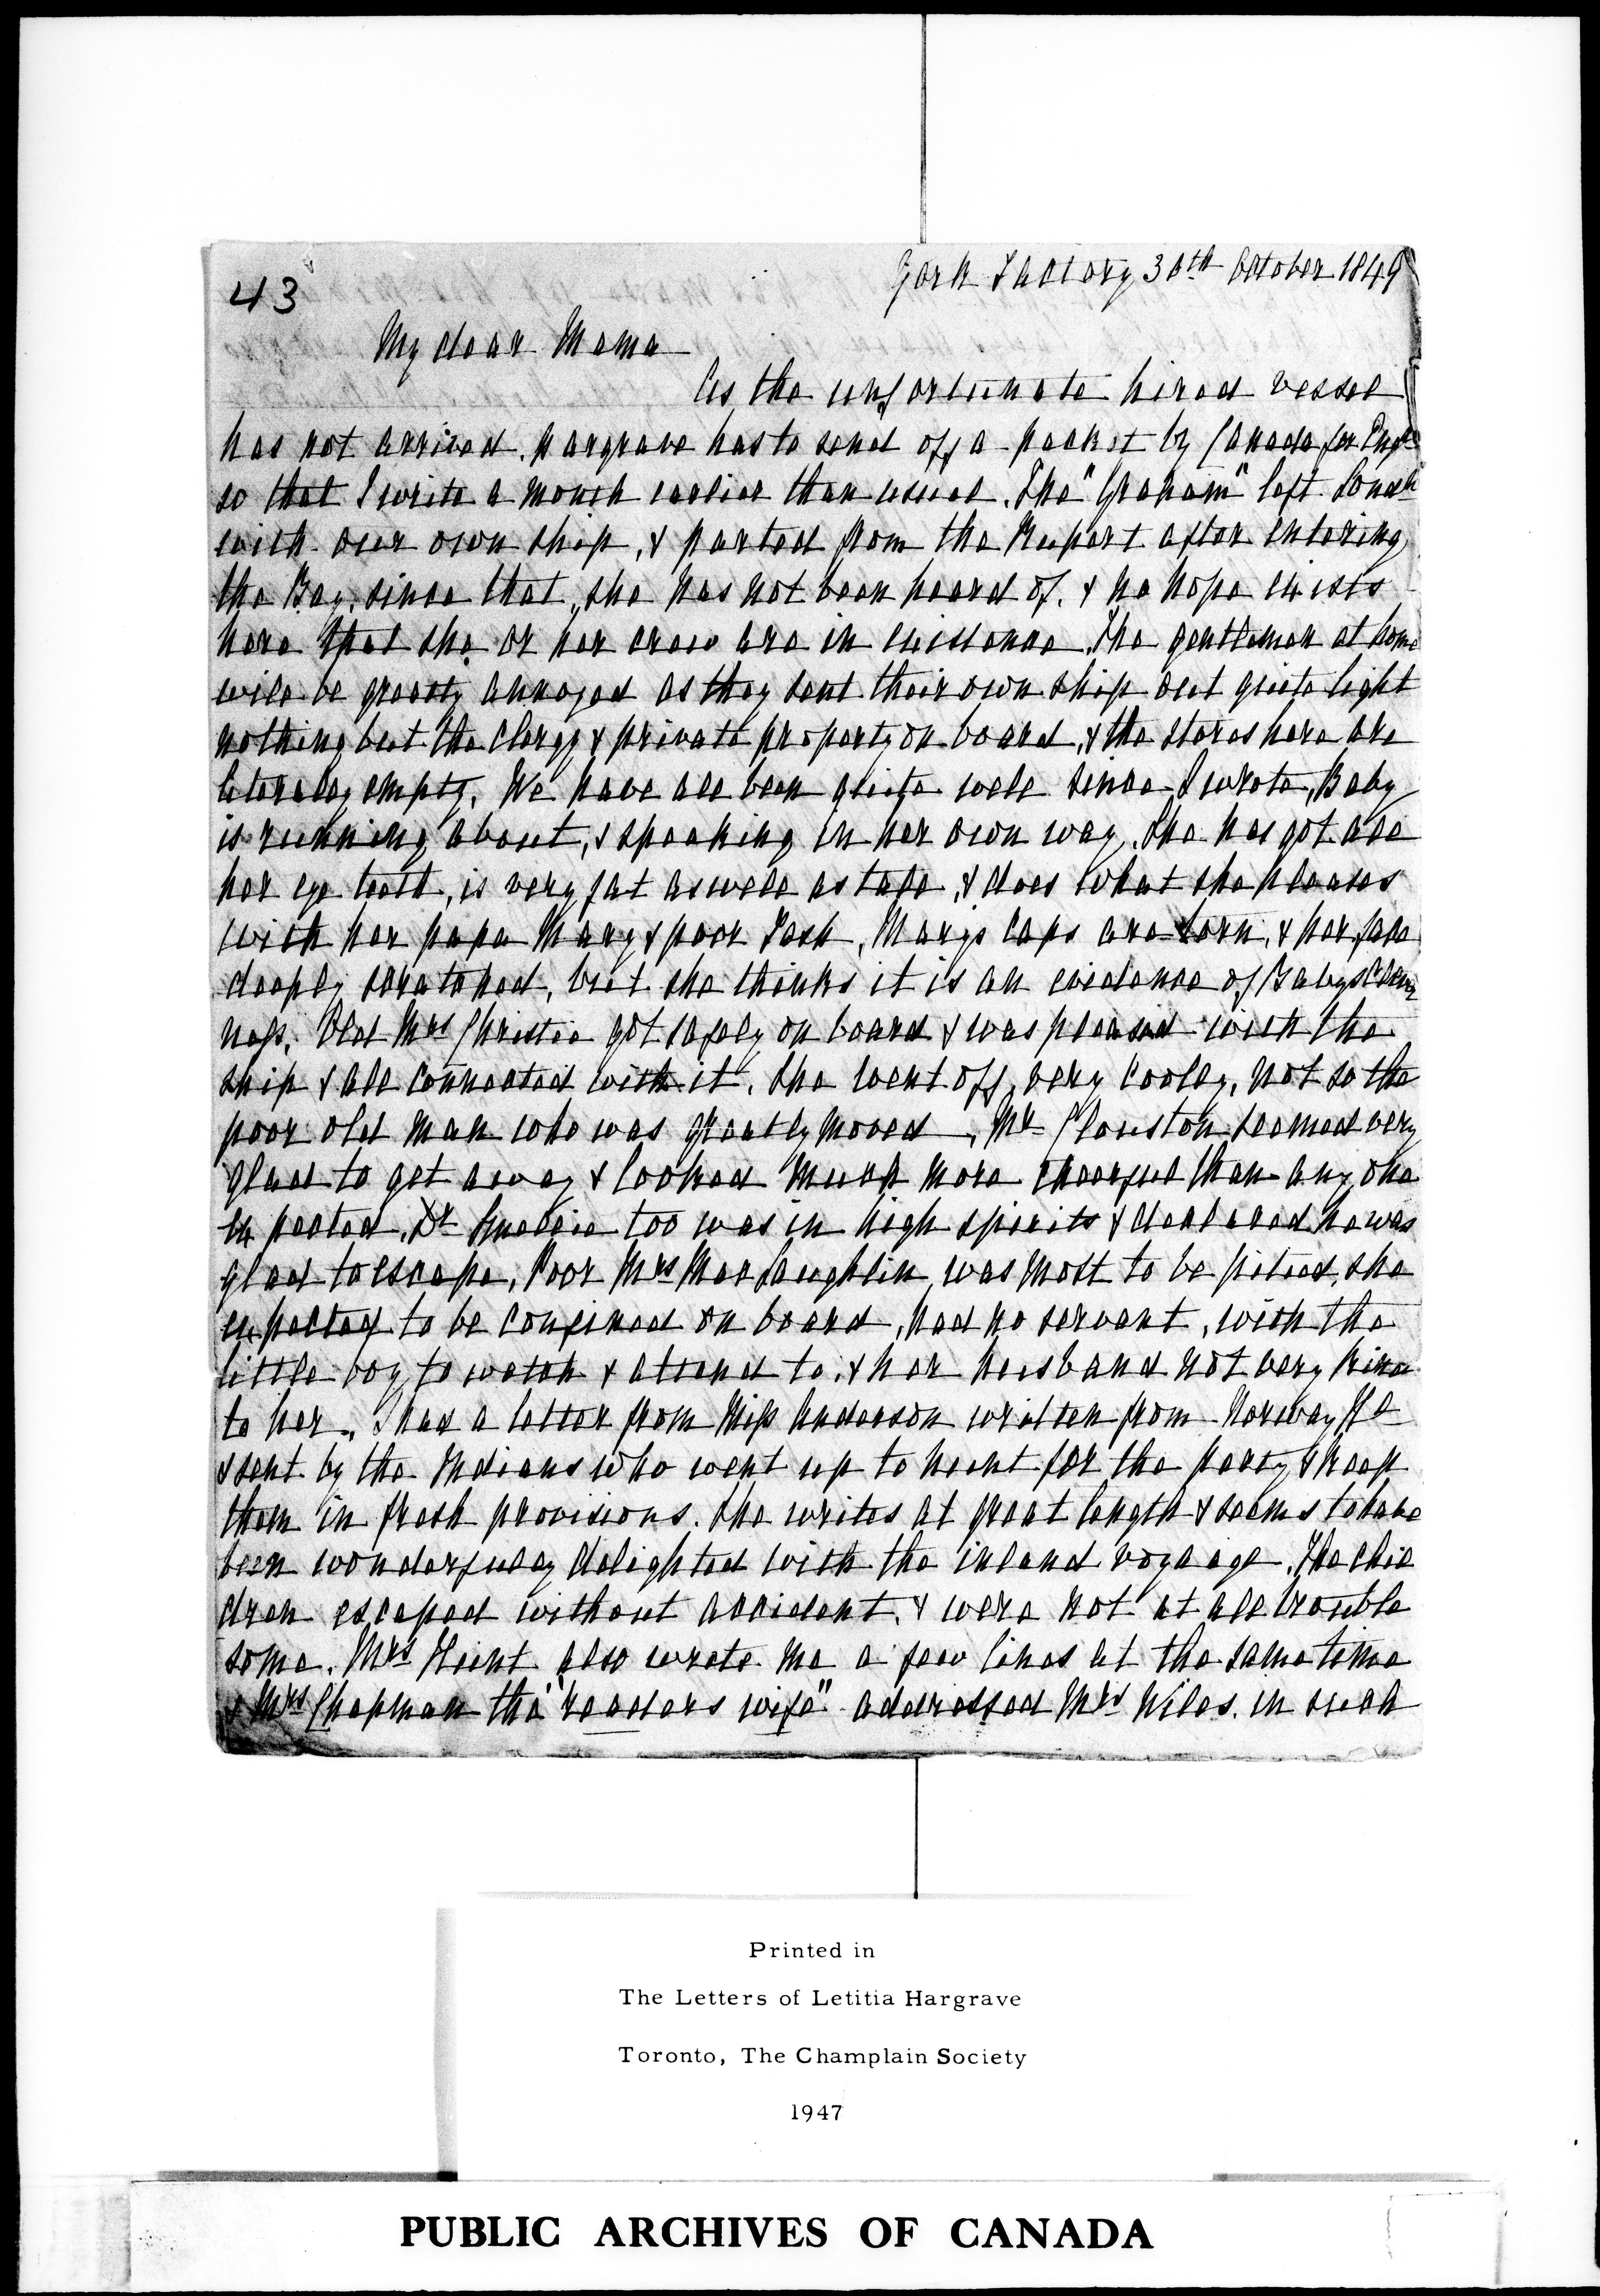 43
York Factory 30th October 1849
My dear Mama
As the unfortunate hired vessel
has not arrived. Hargrave has to send off a packet by Canada for
so that I write a month earlier than usual. The "Graham" left
with our own ship, & parted from the Rupert after entering
the Bay, since that, she has not been heard of. & no hope exists
here that she or her crew are in existence. The gentlemen at home
will be greatly annoyed as they sent their own ship out quite light
nothing but the clergy & private property on board, & the stores here are
literally empty. We have all been quite well since I wrote, Baby
is running about, & speaking in her own way. She has got all
her eye teeth, is very fat as well as tall, & does what she pleases
with her papa Mary & poor Tash, Marys caps are torn, & her face
deeply scratched, but she thinks it is an evidence of Babys clever
ness. Old Mrs Christie got safely on board & was pleased with the
ship & all connected with it. She went off very cooly, not so the
poor old man who was greatly moved, Mr Clouston seemed very
glad to get away & looked much more cheerful than any one
expected. Dr Smellie too was in high spirits & declared he was
glad to escape, Poor Mrs MacLaughlin was most to be pitied, she
expected to be confined on board, had no servant, with the
little boy to watch & attend to, & her husband not very kind
to her. I had a letter from Miss Anderson written from Norway He
& sent by the Indians who went up to hunt for the party & keep
them in fresh provisions. She writes at great length & seems to have
been wonderfully delighted with the inland voyage. The chil
dren escaped without accident, & were not at all trouble
some. Mrs Hunt also wrote me a few lines at the same time
& Mrs Chapman the "readers wife" addressed Mrs Wiles in such
Printed in
The Letters of Letitia Hargrave
Toronto, The Champlain Society
1947
PUBLIC ARCHIVES OF CANADA